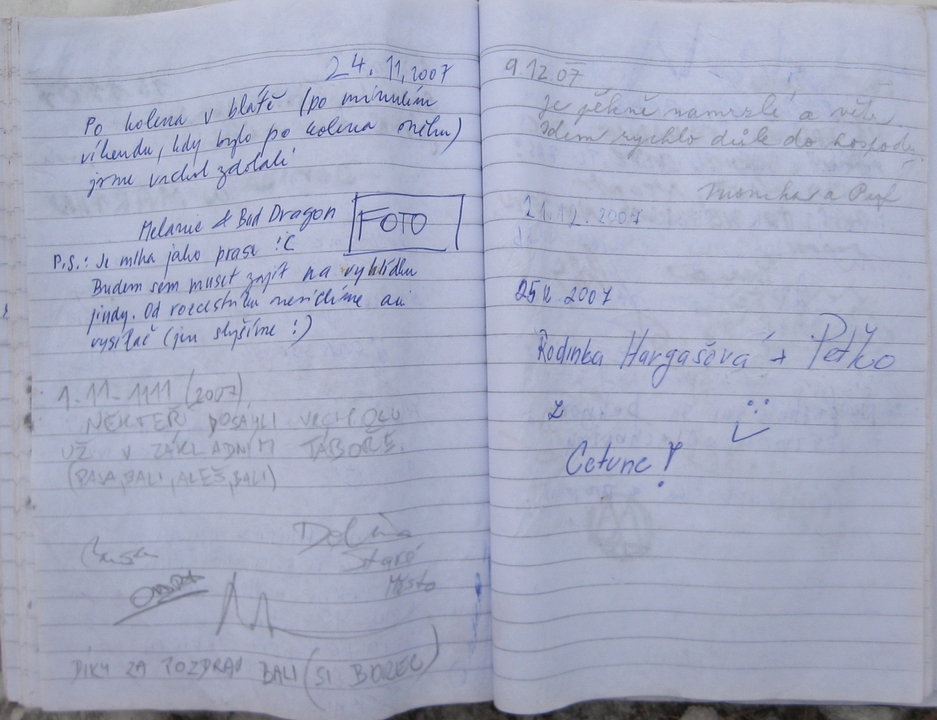 24.11.2007
Po kolena v blátě (po minulém
víkendu, kdy bylo po kolena sněhu)
jsme vrchol zdolali
Melanie & Bud Dragon
FOTO
P.S.: Je mlha jako prase :(
Budem sem muset zajít na vyhlídku
jindy. Od rozcestníku nevidíme ani
vysílač (jen slyšíme :)
1.11.1111 (2007)
NĚKTEŘÍ DOSÁHLI VRCHOLU
UŽ V ZÁKLADNÍM TÁBOŘE.
(PAVA, BALI, ALEŠ, BALI)
Staré
Město
DÍKY ZA POZDRAV BALI (SI BOREC)
9.12.07
je pěkně namrzlé a
jdem rychlo důle do hospody
Monika a
21.12.2007
25.12.2007
Rodinka Hargašová + Peťko
z
Cetune!